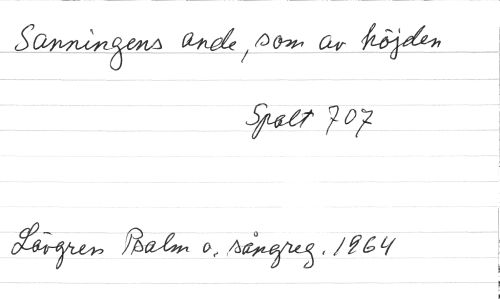 Sanningens ande, som av höjden
Spalt 707
Lövgren Psalm o. sångreg. 1964